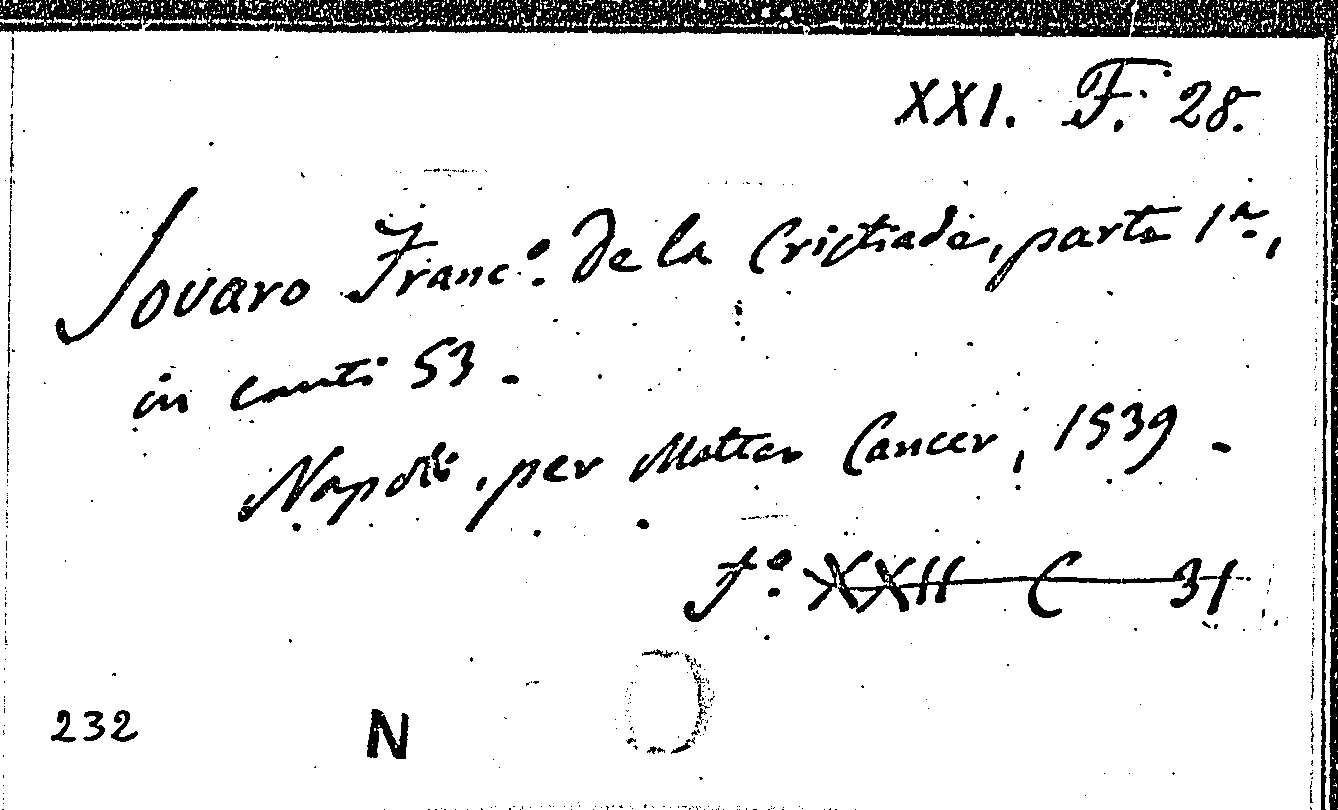 XXI. F. 28.
Jovaro Franc.º De la Cristiade, parte 1ª,
in canti 53.
Napoli, per Matteo Cancer, 1539.
f.º XXII C 31
232 N